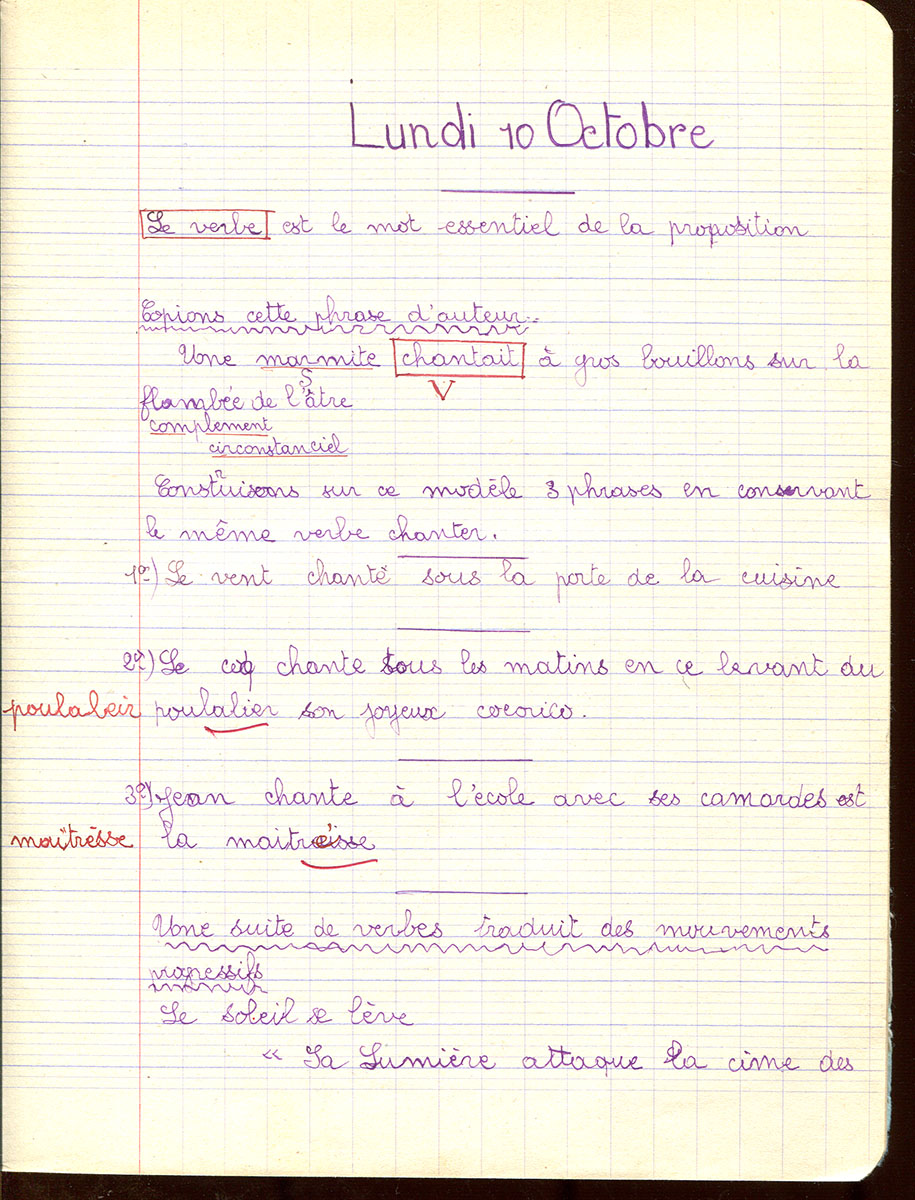 Lundi 10 Octobre
Le verbe est le mot essentiel de la proposition
Copions cette phrase d'auteur.
Une marmite chantait à gros bouillons sur la
S
V
flambée de l'âtre
complement
circonstanciel
Construisons sur ce modèle 3 phrases en conservant
le même verbe chanter.
1o) Le vent chanté sous la porte de la cuisine
2o) Le coq chante tous les matins en ce levant du
poulaleir poulalier son joyeux cocorico.
3o) Jean chante à l'école avec ses camardes est
maïtrèsse la maitreisse
Une suite de verbes traduit des mouvements
progessifs
Le soleil se lève
« Sa Lumière attaque la cime des